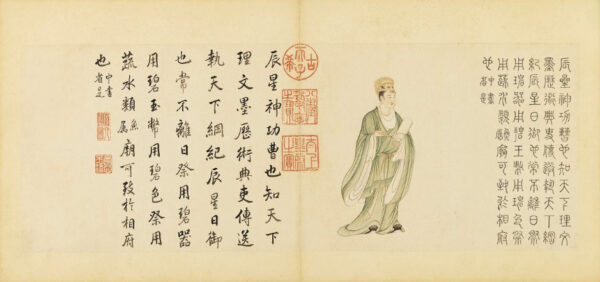 辰星神功曹也知天下理文
墨歷術典吏傳送執天下綱
紀辰星日御也常不離日祭
用碧器用碧玉幣用碧色祭
用蔬水類魚属廟可致於相府
也中書省是
古希天子
八徵耄念之寶
辰星神功曹也知天下
理文墨歷術典吏傳送
執天下綱紀辰星日御
也常不離日祭用碧器
用碧玉幣用碧色祭用
蔬水類魚属廟可致於相府
也中書省是